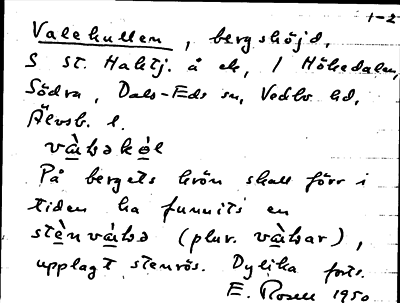 1-2
Valekullen, bergshöjd,
S st. Haktj. å ek, / Hökedalen,
Södra, Dals-Eds sn, Vedbo hd,
Älvsb. l.
vàḷəkól
På bergets krön skall förr i
tiden ha funnits en
stènvàḷə (plur. vàḷar),
upplagt stenrös. Dylika forts.
E. Rosell 1950